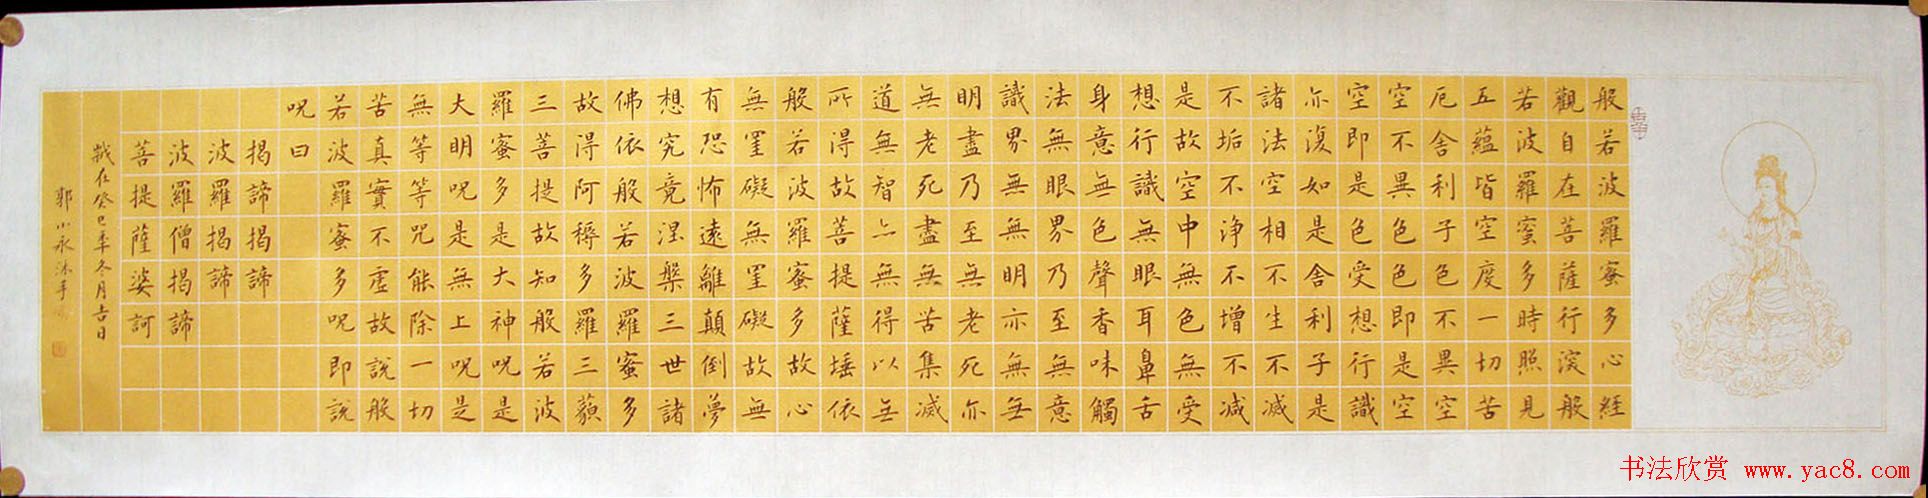 般若波羅蜜多心經
觀自在菩薩行深般
若波羅蜜多時照見
五蘊皆空度一切苦
厄舍利子色不異空
空不異色色即是空
空即是色受想行識
亦復如是舍利子是
諸法空相不生不滅
不垢不淨不增不減
是故空中無色無受
想行識無眼耳鼻舌
身意無色聲香味觸
法無眼界乃至無意
識界無無明亦無無
明盡乃至無老死亦
無老死盡無苦集滅
道無智亦無得以無
所得故菩提薩埵依
般若波羅蜜多故心
無罣礙無罣礙故無
有恐怖遠離顛倒夢
想究竟涅槃三世諸
佛依般若波羅蜜多
故得阿耨多羅三藐
三菩提故知般若波
羅蜜多是大神呪是
大明呪是無上呪是
無等等呪能除一切
苦真實不虛故說般
若波羅蜜多呪即說
呪曰
揭諦揭諦
波羅揭諦
波羅僧揭諦
菩提薩婆訶
歲在癸巳年冬月吉日
郭小永沐手
书法欣赏 www.yac8.com